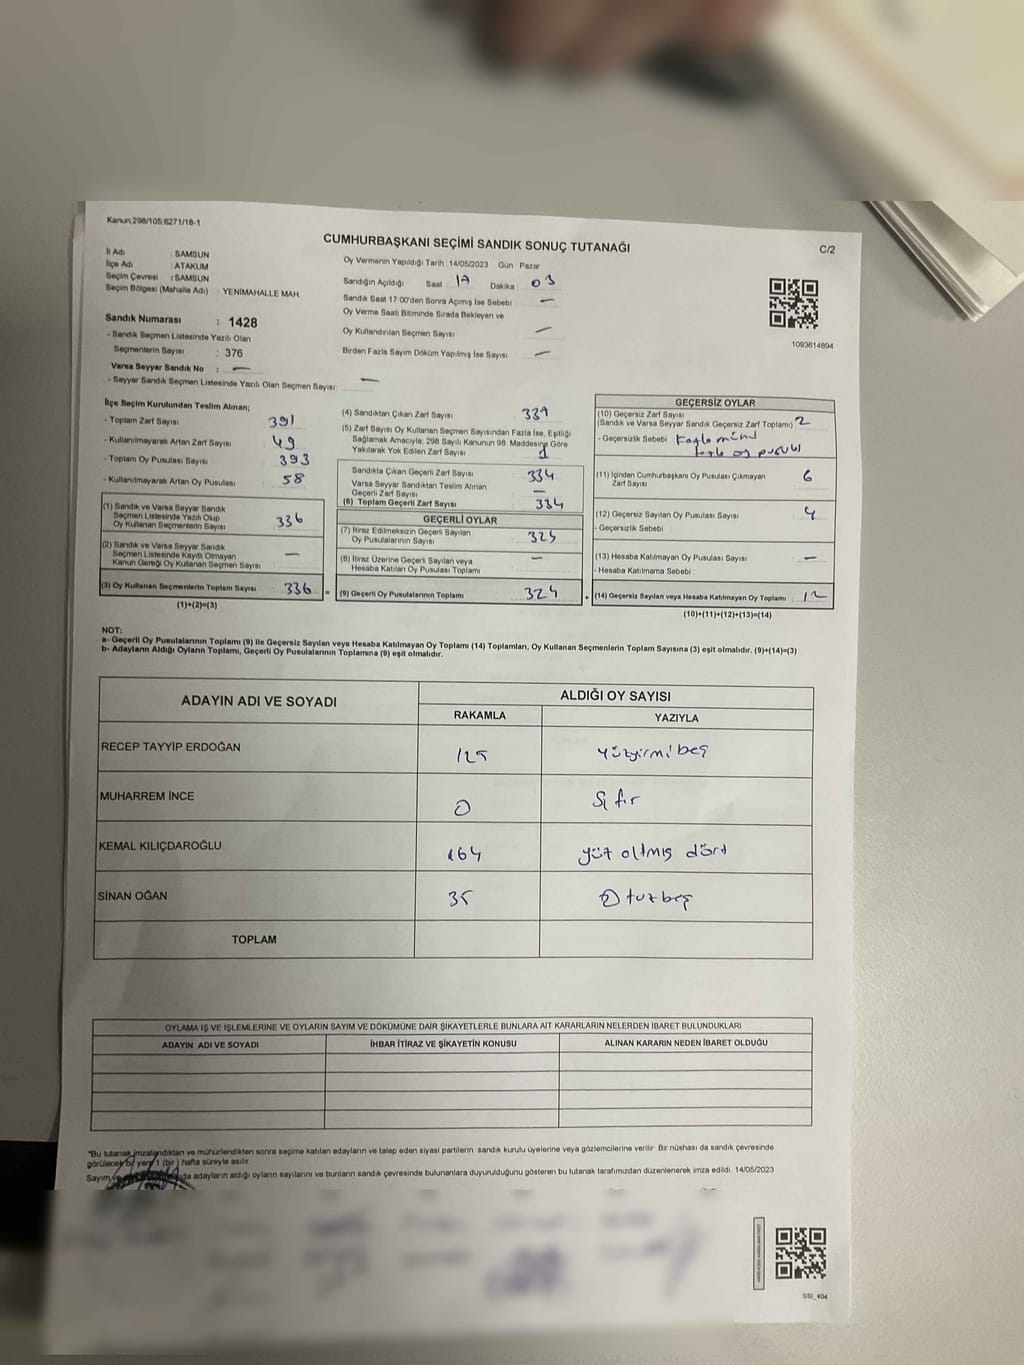 Kanun;298/105,6271/18-1
CUMHURBAŞKANI SEÇİMİ SANDIK SONUÇ TUTANAĞI
C/2
İl Adı : SAMSUN
İlçe Adı : ATAKUM
Seçim Çevresi : SAMSUN
Seçim Bölgesi (Mahalle Adı) : YENİMAHALLE MAH.
Sandık Numarası : 1428
- Sandık Seçmen Listesinde Yazılı Olan
Seçmenlerin Sayısı : 376
Varsa Seyyar Sandık No : —
- Seyyar Sandık Seçmen Listesinde Yazılı Olan Seçmen Sayısı: —
Oy Vermenin Yapıldığı Tarih :14/05/2023 Gün Pazar
Sandığın Açıldığı Saat 17 Dakika : 03
Sandık Saat 17:00'den Sonra Açımış İse Sebebi : —
Oy Verme Saati Bitiminde Sırada Bekleyen ve
Oy Kullandırılan Seçmen Sayısı : —
Birden Fazla Sayım Döküm Yapılmış İse Sayısı : —
1093614894
İlçe Seçim Kurulundan Teslim Alınan;
- Toplam Zarf Sayısı : 391
- Kullanılmayarak Artan Zarf Sayısı : 49
- Toplam Oy Pusulası Sayısı : 393
- Kullanılmayarak Artan Oy Pusulası : 58
(1) Sandık ve Varsa Seyyar Sandık
Seçmen Listesinde Yazılı Olup
Oy Kullanan Seçmenlerin Sayısı : 336
(2) Sandık ve Varsa Seyyar Sandık
Seçmen Listesinde Kayıtlı Olmayan
Kanun Gereği Oy Kullanan Seçmen Sayısı : —
(3) Oy Kullanan Seçmenlerin Toplam Sayısı : 336
(1)+(2)=(3)
(4) Sandıktan Çıkan Zarf Sayısı :
(5) Zarf Sayısı Oy Kullanan Seçmen Sayısından Fazla İse, Eşitliği
Sağlamak Amacıyla, 298 Sayılı Kanunun 98. Maddesine Göre
Yakılarak Yok Edilen Zarf Sayısı
Sandıkta Çıkan Geçerli Zarf Sayısı : 334
Varsa Seyyar Sandıktan Teslim Alınan
Geçerli Zarf Sayısı : —
(6) Toplam Geçerli Zarf Sayısı : 334
GEÇERLİ OYLAR
(7) İtiraz Edilmeksizin Geçerli Sayılan
Oy Pusulalarının Sayısı : 324
(8) İtiraz Üzerine Geçerli Sayılan veya
Hesaba Katılan Oy Pusulası Toplamı : —
(9) Geçerli Oy Pusulalarının Toplamı : 324
GEÇERSİZ OYLAR
(10) Geçersiz Zarf Sayısı
(Sandık ve Varsa Seyyar Sandık Geçersiz Zarf Toplamı) 2
- Geçersizlik Sebebi : oy pusulası
(11) İçinden Cumhurbaşkanı Oy Pusulası Çıkmayan
Zarf Sayısı : 6
(12) Geçersiz Sayılan Oy Pusulası Sayısı : 4
- Geçersizlik Sebebi
(13) Hesaba Katılmayan Oy Pusulası Sayısı : —
- Hesaba Katılmama Sebebi :
(14) Geçersiz Sayılan veya Hesaba Katılmayan Oy Toplamı : 12
(10)+(11)+(12)+(13)=(14)
NOT:
a- Geçerli Oy Pusulalarının Toplamı (9) ile Geçersiz Sayılan veya Hesaba Katılmayan Oy Toplamı (14) Toplamları, Oy Kullanan Seçmenlerin Toplam Sayısına (3) eşit olmalıdır. (9)+(14)=(3)
b- Adayların Aldığı Oyların Toplamı, Geçerli Oy Pusulalarının Toplamına (9) eşit olmalıdır.
ADAYIN ADI VE SOYADI
ALDIĞI OY SAYISI
RAKAMLA YAZIYLA
RECEP TAYYİP ERDOĞAN 125 yüzyirmibeş
MUHARREM İNCE 0 Sıfır
KEMAL KILIÇDAROĞLU 164 yüz altmış dört
SİNAN OĞAN 35 Otuzbeş
TOPLAM
OYLAMA İŞ VE İŞLEMLERİNE VE OYLARIN SAYIM VE DÖKÜMÜNE DAİR ŞİKAYETLERLE BUNLARA AİT KARARLARIN NELERDEN İBARET BULUNDUKLARI
ADAYIN ADI VE SOYADI İHBAR İTİRAZ VE ŞİKAYETİN KONUSU ALINAN KARARIN NEDEN İBARET OLDUĞU
*Bu tutanak imzalandıktan ve mühürlendikten sonra seçime katılan adayların ve talep eden siyasi partilerin sandık kurulu üyelerine veya gözlemcilerine verilir. Bir nüshası da sandık çevresinde
görülecek bir yere 1 (bir) hafta süreyle asılır.
Sayım adayların aldığı oyların sayılarını ve bunların sandık çevresinde bulunanlara duyurulduğunu gösteren bu tutanak tarafımızdan düzenlenerek imza edildi. 14/05/2023
SSI_404